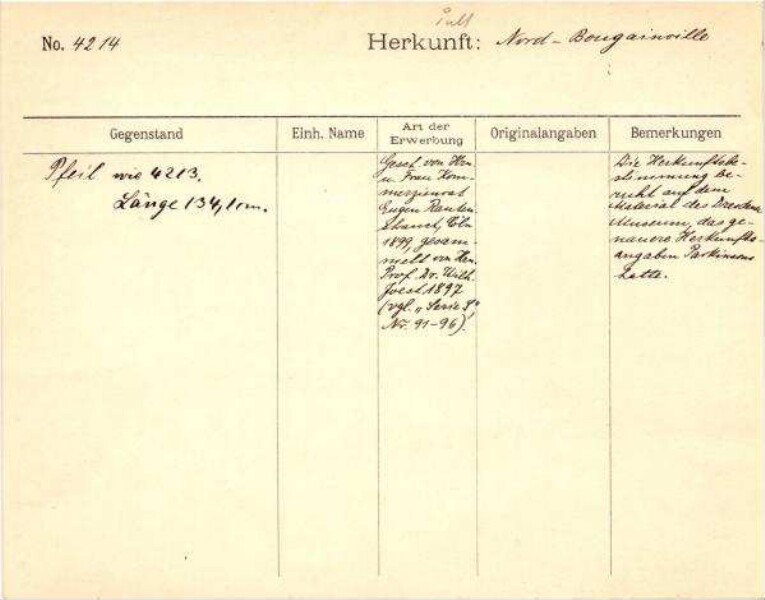 No. 4214
Herkunft: Nord-Bougainville
Gegenstand
Einh. Name
Art der Erwerbung
Originalangaben
Bemerkungen
Pfeil wie 4213.
Länge 134,1 cm.
Gesch. von Hrn
u. Frau Kom-
merzienrat
Eugen Rauten-
strauch, Cöln
1899, gesam-
melt von Hrn.
Prof. Dr. Wilh.
Joest 1897
(vgl. „Serie S",
Nr. 91-96).
Die Herkunftsbe-
stimmung be-
ruht auf dem
Material des Dresdner
Museums, das ge-
nauere Herkunfts-
angaben Parkinsons
hatte.